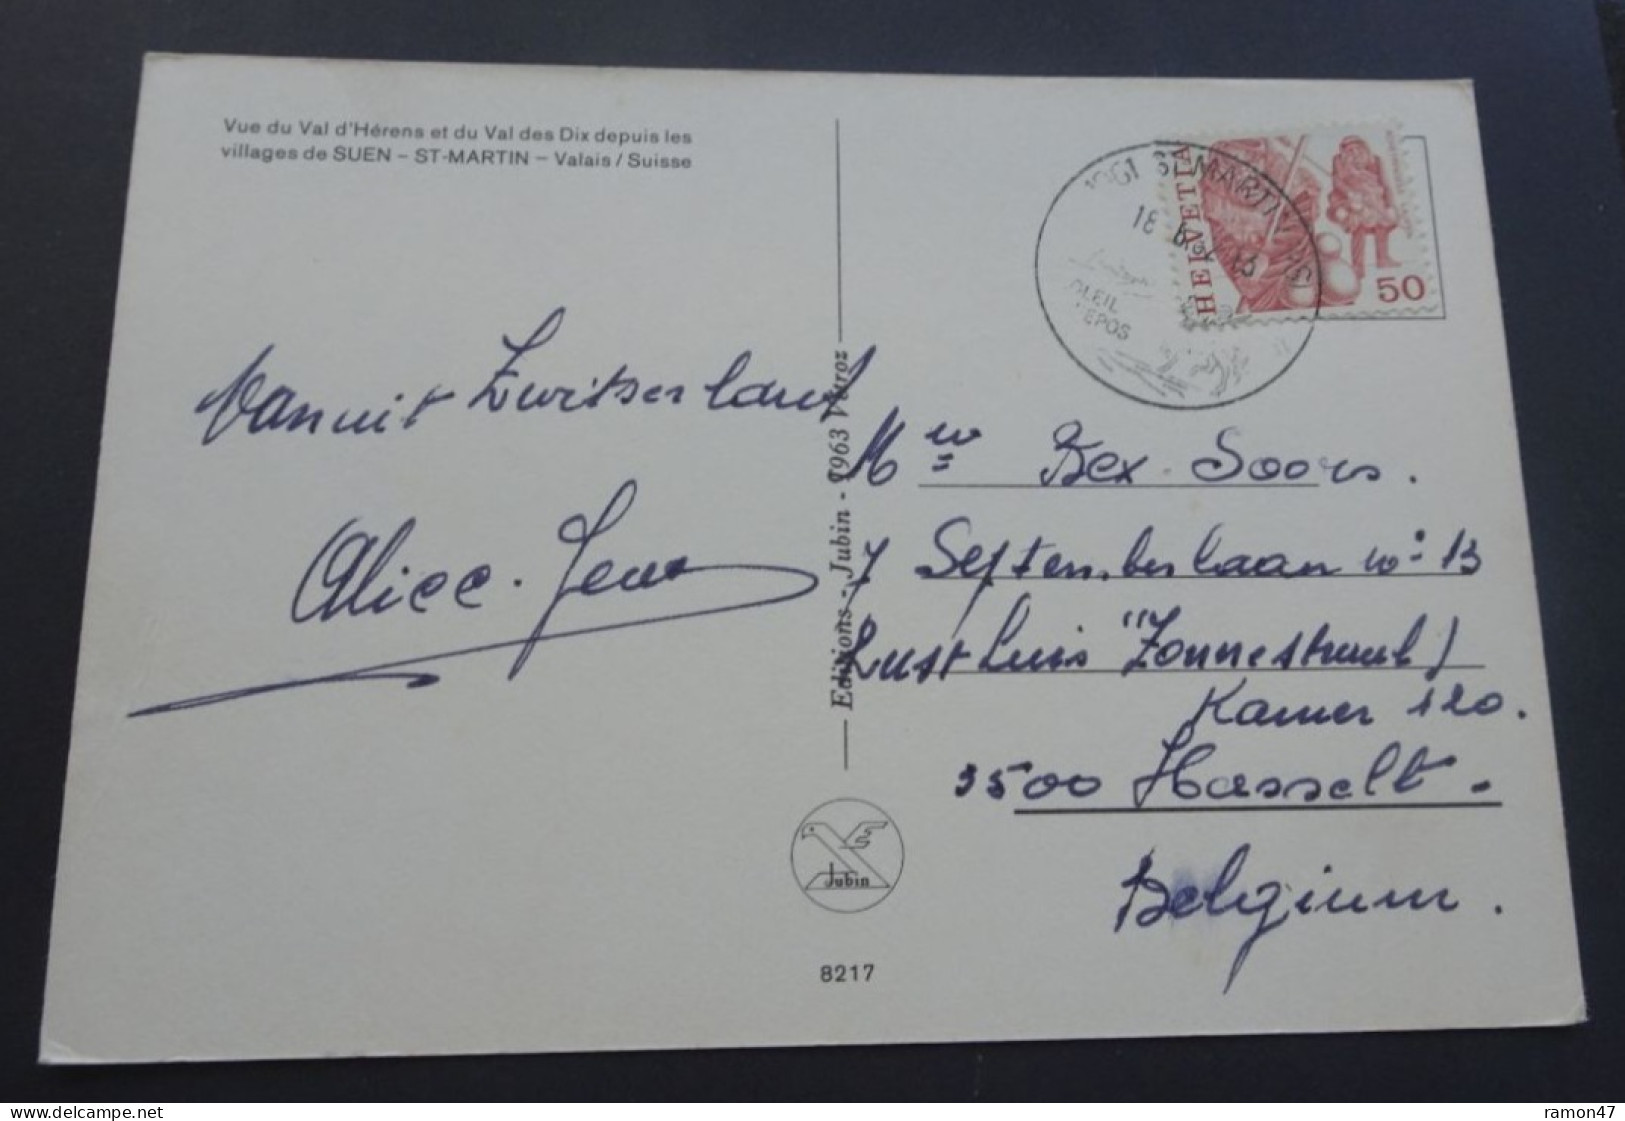 Vue du Val d'Hérens et du Val des Dix depuis les
villages de SUEN – ST-MARTIN – Valais / Suisse
Vanuit Zwitserland
Alice - Jean
Editions - Jubin - 1963 Vétroz
Jubin
8217
1961 ST-MARTIN VS
18
OLEIL
EPOS
HELVETIA
50
Mew Bex. Soors.
7 Septemberlaan no 13
Rust Huis "Zonnestraal)
Kamer 120.
3500 Hasselt.
Belgium.
www.delcampe.net
ramon47